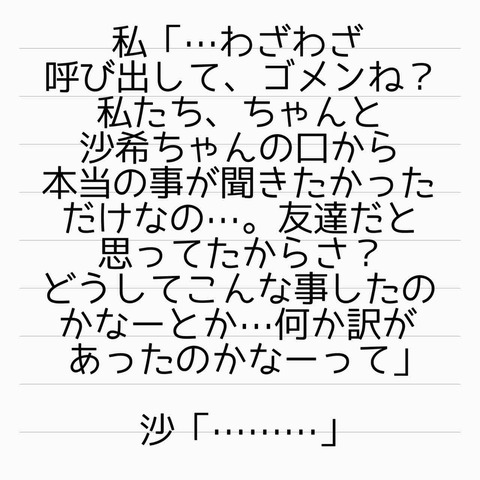 私「…わざわざ
呼び出して、ゴメンね？
私たち、ちゃんと
沙希ちゃんの口から
本当の事が聞きたかった
だけなの…。友達だと
思ってたからさ？
どうしてこんな事したの
かなーとか…何か訳が
あったのかなーって」
沙「………」